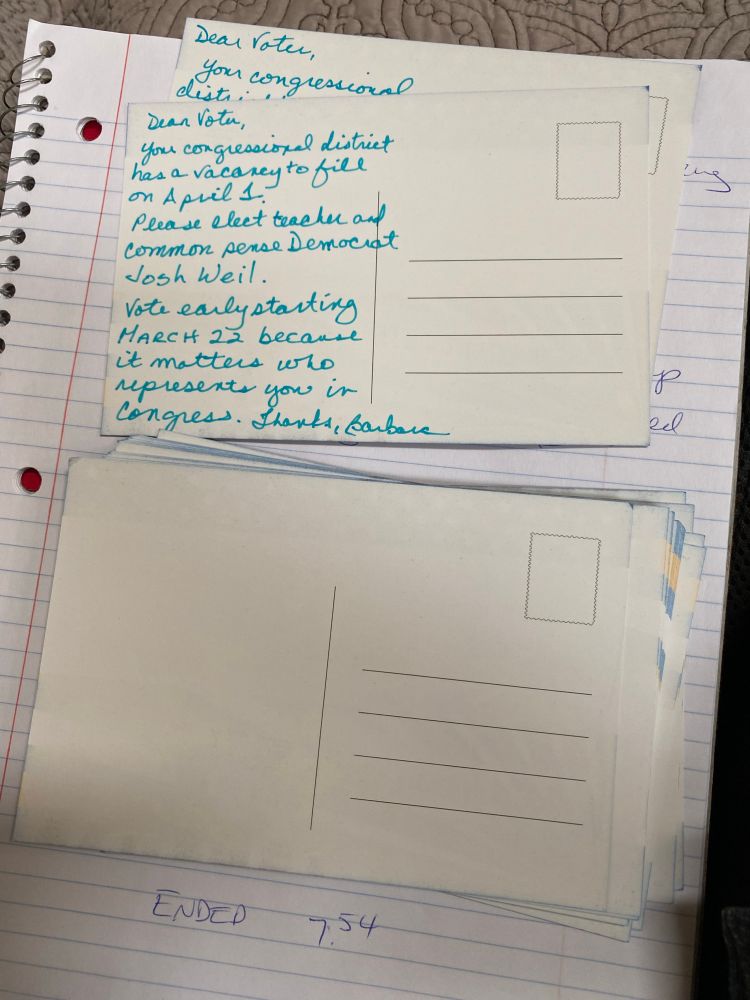 Dear Voter,
Your congressional
Dear Voter,
Your congressional district
has a vacancy to fill
on April 1.
Please elect teacher and
common sense Democrat
Josh Weil.
Vote early starting
MARCH 22 because
it matters who
represents you in
Congress. Thanks, Barbara
ENDED 7.54